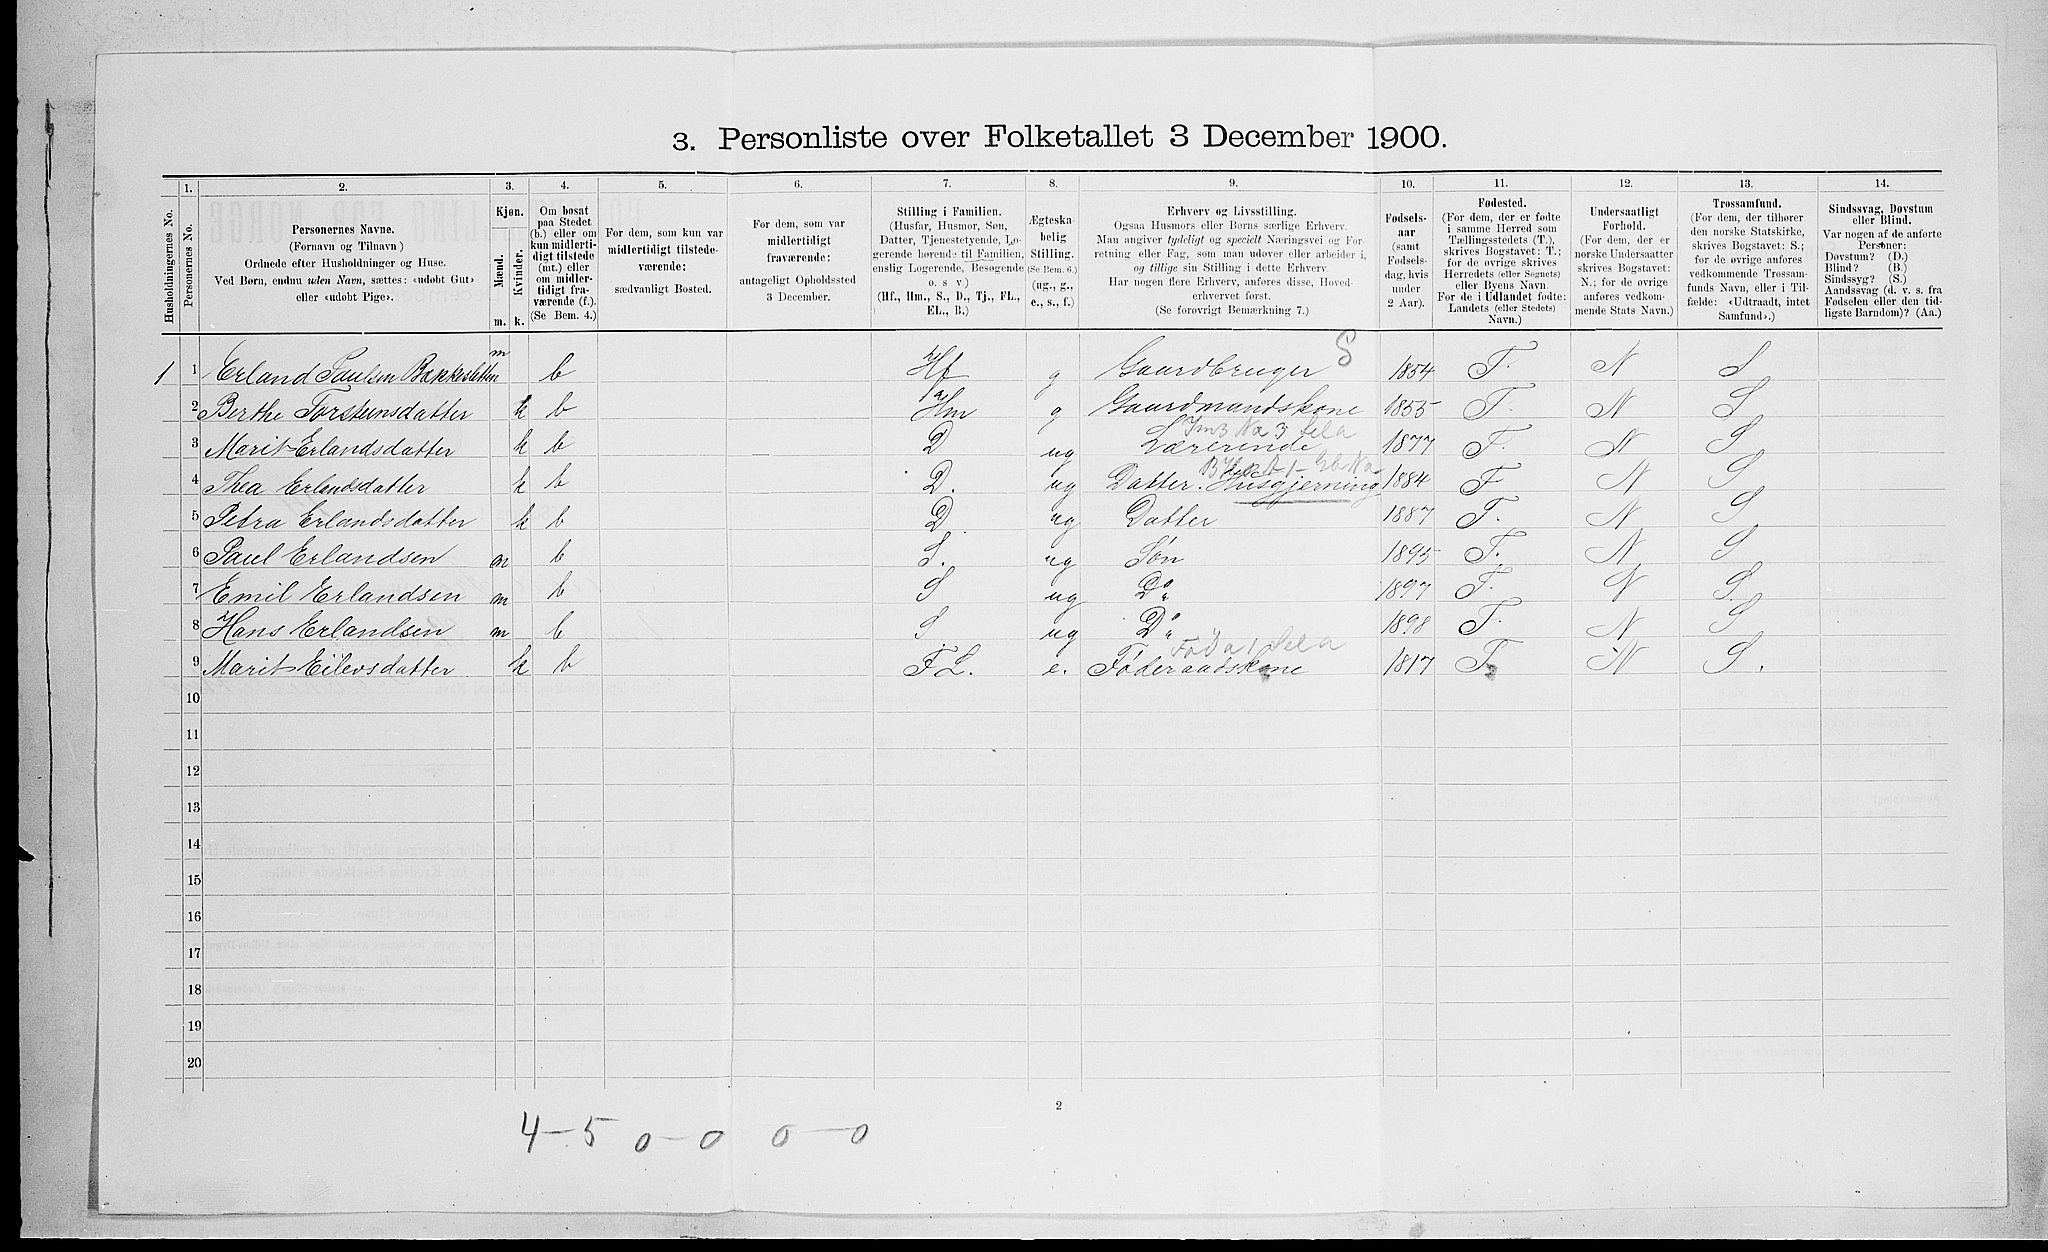 3. Personliste over Folketallet 3 December 1900.
Husholdningernes No.
1.
Personernes No.
2.
Personernes Navne.
(Fornavn og Tilnavn)
Ordnede efter Husholdninger og Huse.
Ved Børn, endnu uden Navn, sættes: «udøbt Gut»
eller «udøbt Pige».
3.
Kjøn.
Mænd.
Kvinder.
m. k.
4.
Om bosat
paa Stedet
(b.) eller om
kun midlerti-
digt tilstede
(mt.) eller
om midler-
tidigt fra-
værende (f.).
(Se Bem. 4.)
5.
For dem, som kun var
midlertidigt tilstede-
værende:
sædvanligt Bosted.
6.
For dem, som var
midlertidigt
fraværende:
antageligt Opholdssted
3 December.
7.
Stilling i Familien.
(Husfar, Husmor, Søn,
Datter, Tjenestetyende, Lo-
gerende hørende til Familien,
enslig Logerende, Besøgende
o. s. v.)
(Hf., Hm., S., D., Tj., FL.,
EL., B.)
8.
Ægteska-
belig
Stilling.
(Se Bem. 6.)
(ug., g.,
e., s., f.)
9.
Erhverv og Livsstilling.
Ogsaa Husmors eller Børns særlige Erhverv.
Man angiver tydeligt og specielt Næringsvei og For-
retning eller Fag, som man udøver eller arbeider i,
og tillige sin Stilling i dette Erhverv.
Har nogen flere Erhverv, anføres disse, Hoved-
erhvervet først.
(Se forøvrigt Bemærkning 7.)
10.
Fødsels-
aar
(samt
Fødsels-
dag, hvis
under
2 Aar).
11.
Fødested.
(For dem, der er fødte
i samme Herred som
Tællingsstedets (T.),
skrives Bogstavet: T.;
for de øvrige skrives
Herredets (eller Sognets)
eller Byens Navn.
For de i Udlandet fødte:
Landets (eller Stedets)
Navn.)
12.
Undersaatligt
Forhold.
(For dem, der er
norske Undersaatter
skrives Bogstavet:
N.; for de øvrige
anføres vedkom-
mende Stats Navn.)
13.
Trossamfund.
(For dem, der tilhører
den norske Statskirke,
skrives Bogstavet: S.;
for de øvrige anføres
vedkommende Trossam-
funds Navn, eller i Til-
fælde: «Udtraadt, intet
Samfund».)
14.
Sindssvag, Døvstum
eller Blind.
Var nogen af de anførte
Personer:
Døvstum? (D.)
Blind? (B.)
Sindssyg? (S.)
Aandssvag (d. v. s. fra
Fødselen eller den tid-
ligste Barndom)? (Aa.)
1 1 Erland Paulsen Bakkesletten m b Hf g Gaardbruger S 1854 T. N S
2 Berthe Torstensdatter k b Hm g Gaardmandskone 1855 T. N S
3 Marit Erlandsdatter k b D ug Lærerinde 1877 T. N S
4 Thea Erlandsdatter k b D. ug Datter. Husgjerning 1884 T N S
5 Petra Erlandsdatter k b D. ug Datter 1887 T. N S
6 Paul Erlandsen m b S. ug Søn 1895 T. N S
7 Emil Erlandsen m b S ug Do 1897 T. N S.
8 Hans Erlandsen m b S ug Do 1898 T. N S
9 Marit Eilevsdatter k b F L. e. Føderaadskone 1817 T. N S.
10
11
12
13
14
15
16
17
18
19
20
2
4-5 0-0 0-0